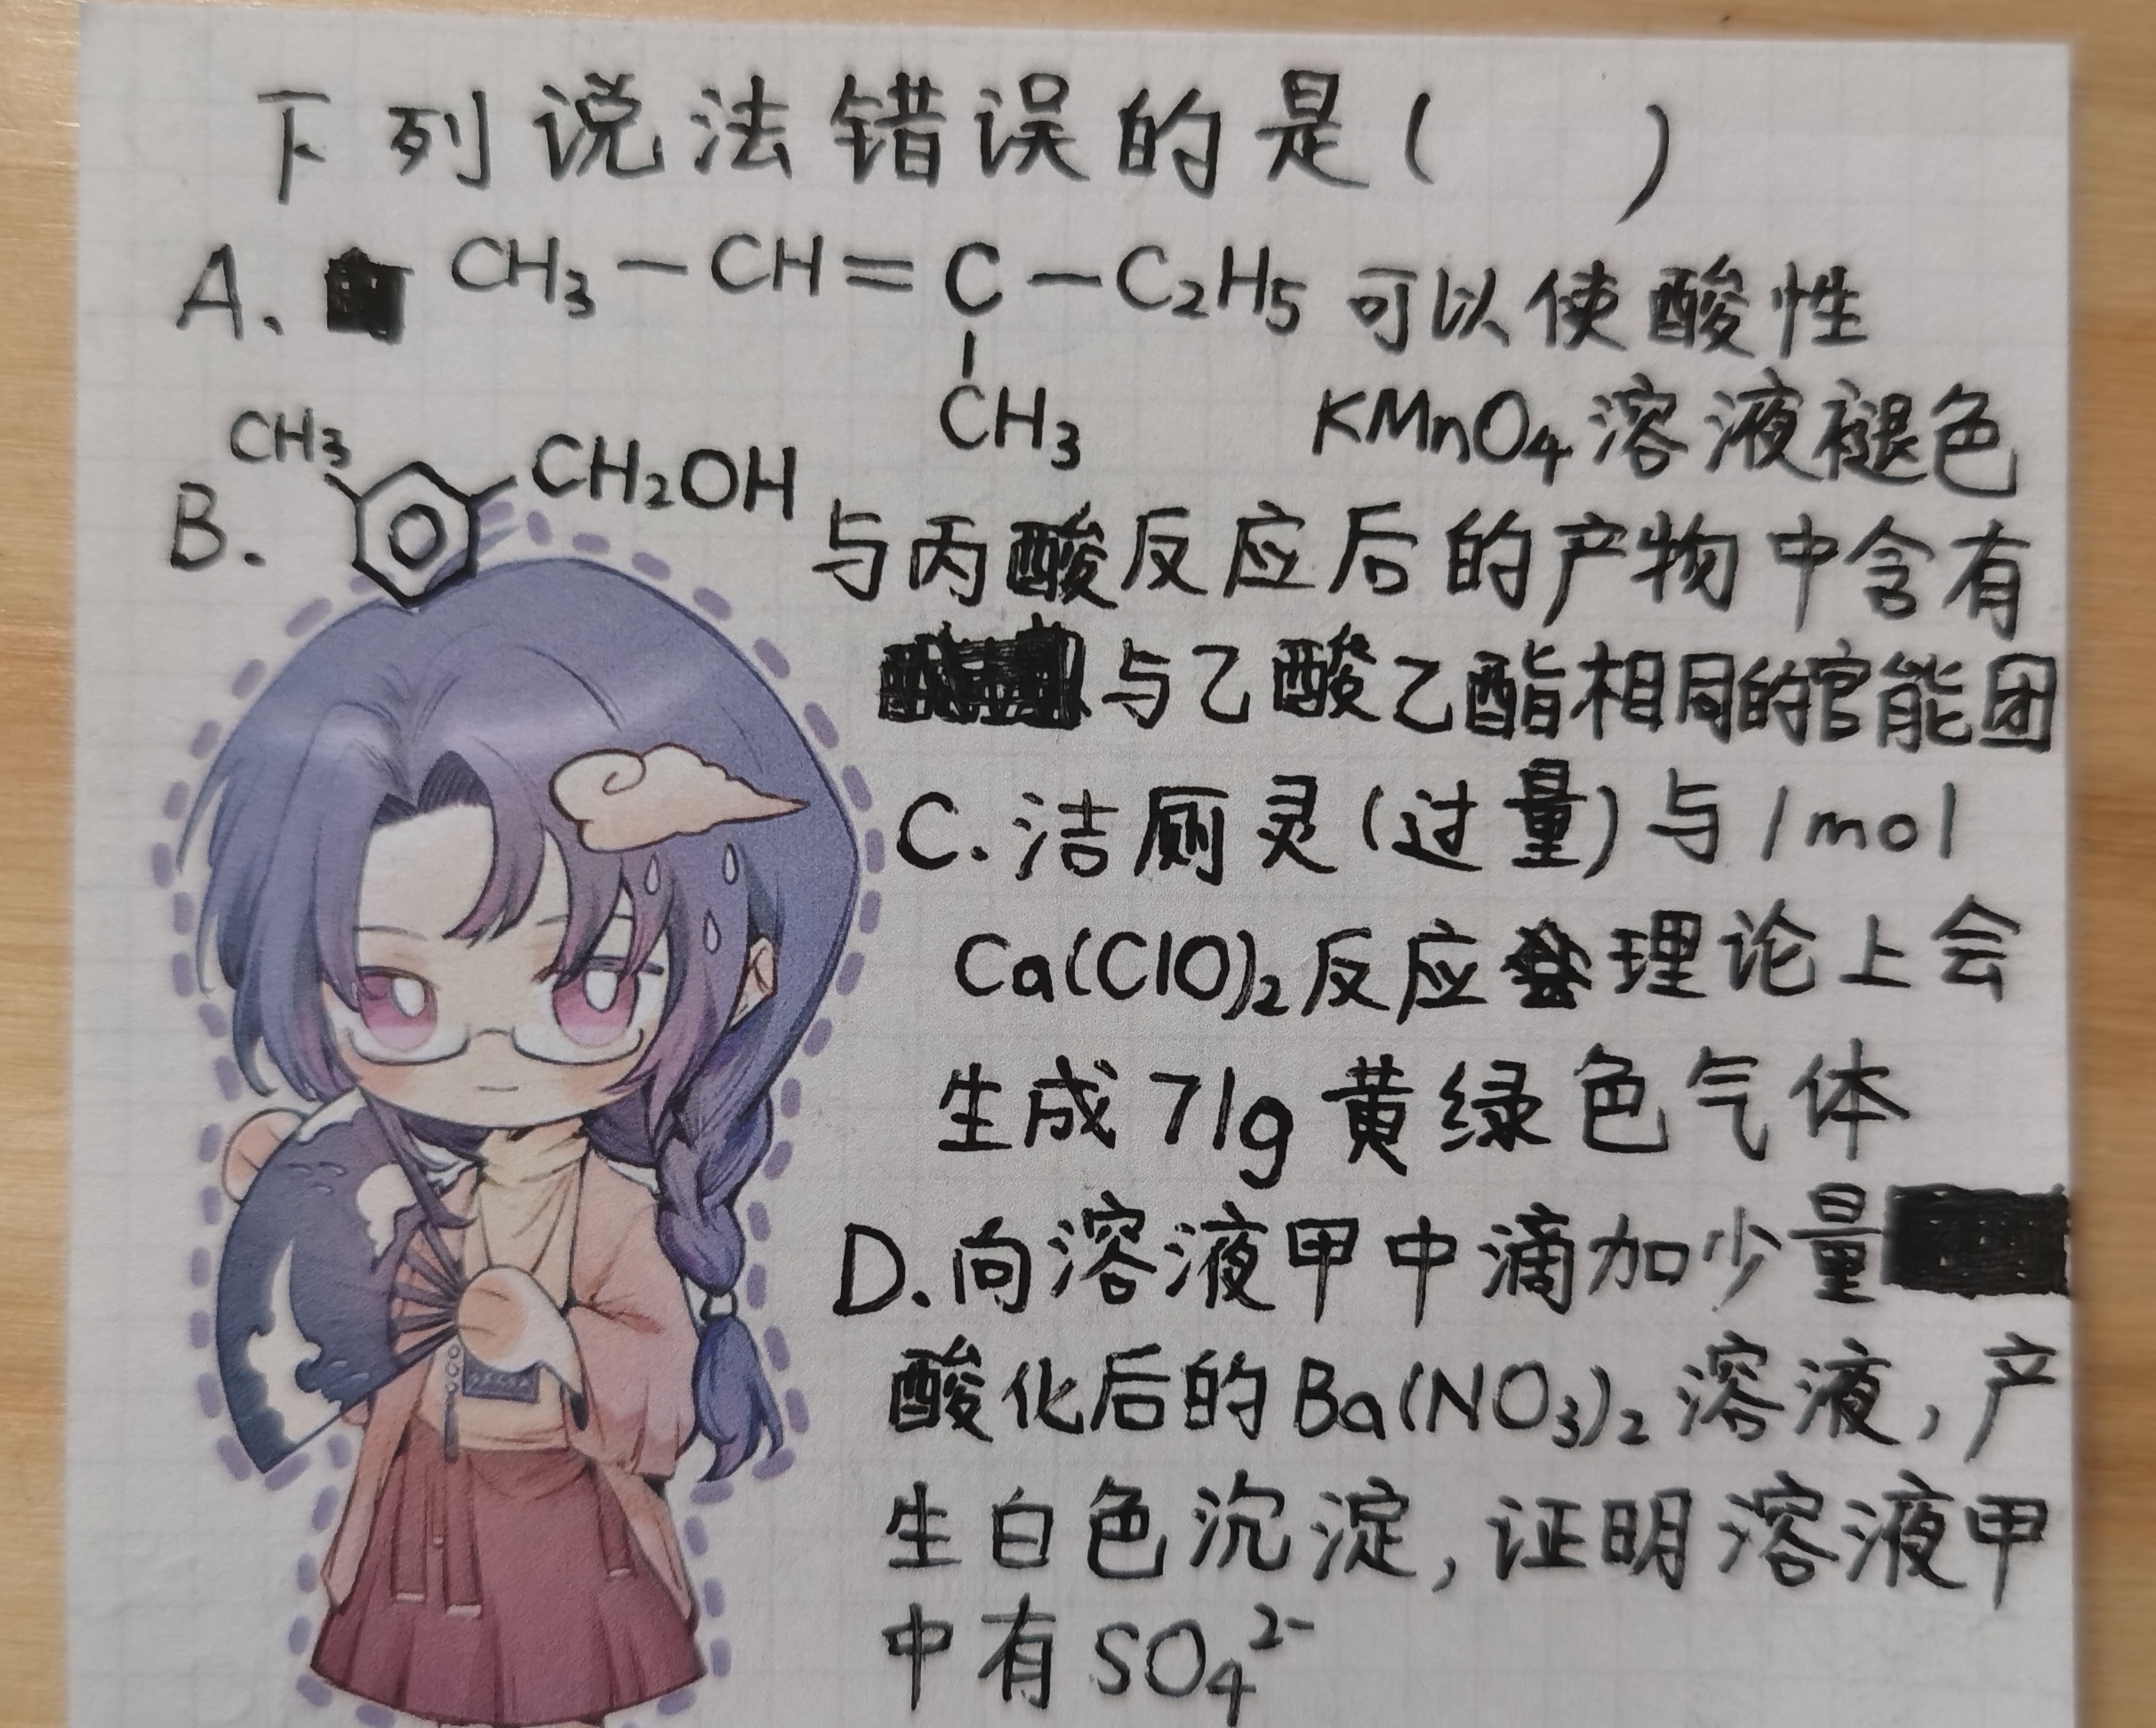 下列说法错误的是（ ）
A. CH₃—CH＝C—C₂H₅ 可以使酸性
CH₃ KMnO₄溶液褪色
B. CH₃ CH₂OH 与丙酸反应后的产物中含有
与乙酸乙酯相同的官能团
C. 洁厕灵(过量)与1mol
Ca(ClO)₂反应理论上会
生成71g黄绿色气体
D. 向溶液甲中滴加少量
酸化后的Ba(NO₃)₂溶液,产
生白色沉淀,证明溶液甲
中有SO₄²⁻